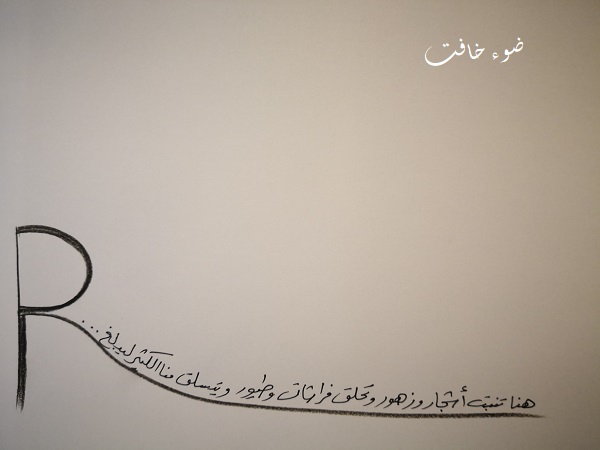 ضوء خافت
R
هنا تنبت أشجار وزهور وتحلق فراشات وطيور ويتسلق منا الكثير ليبلغ...